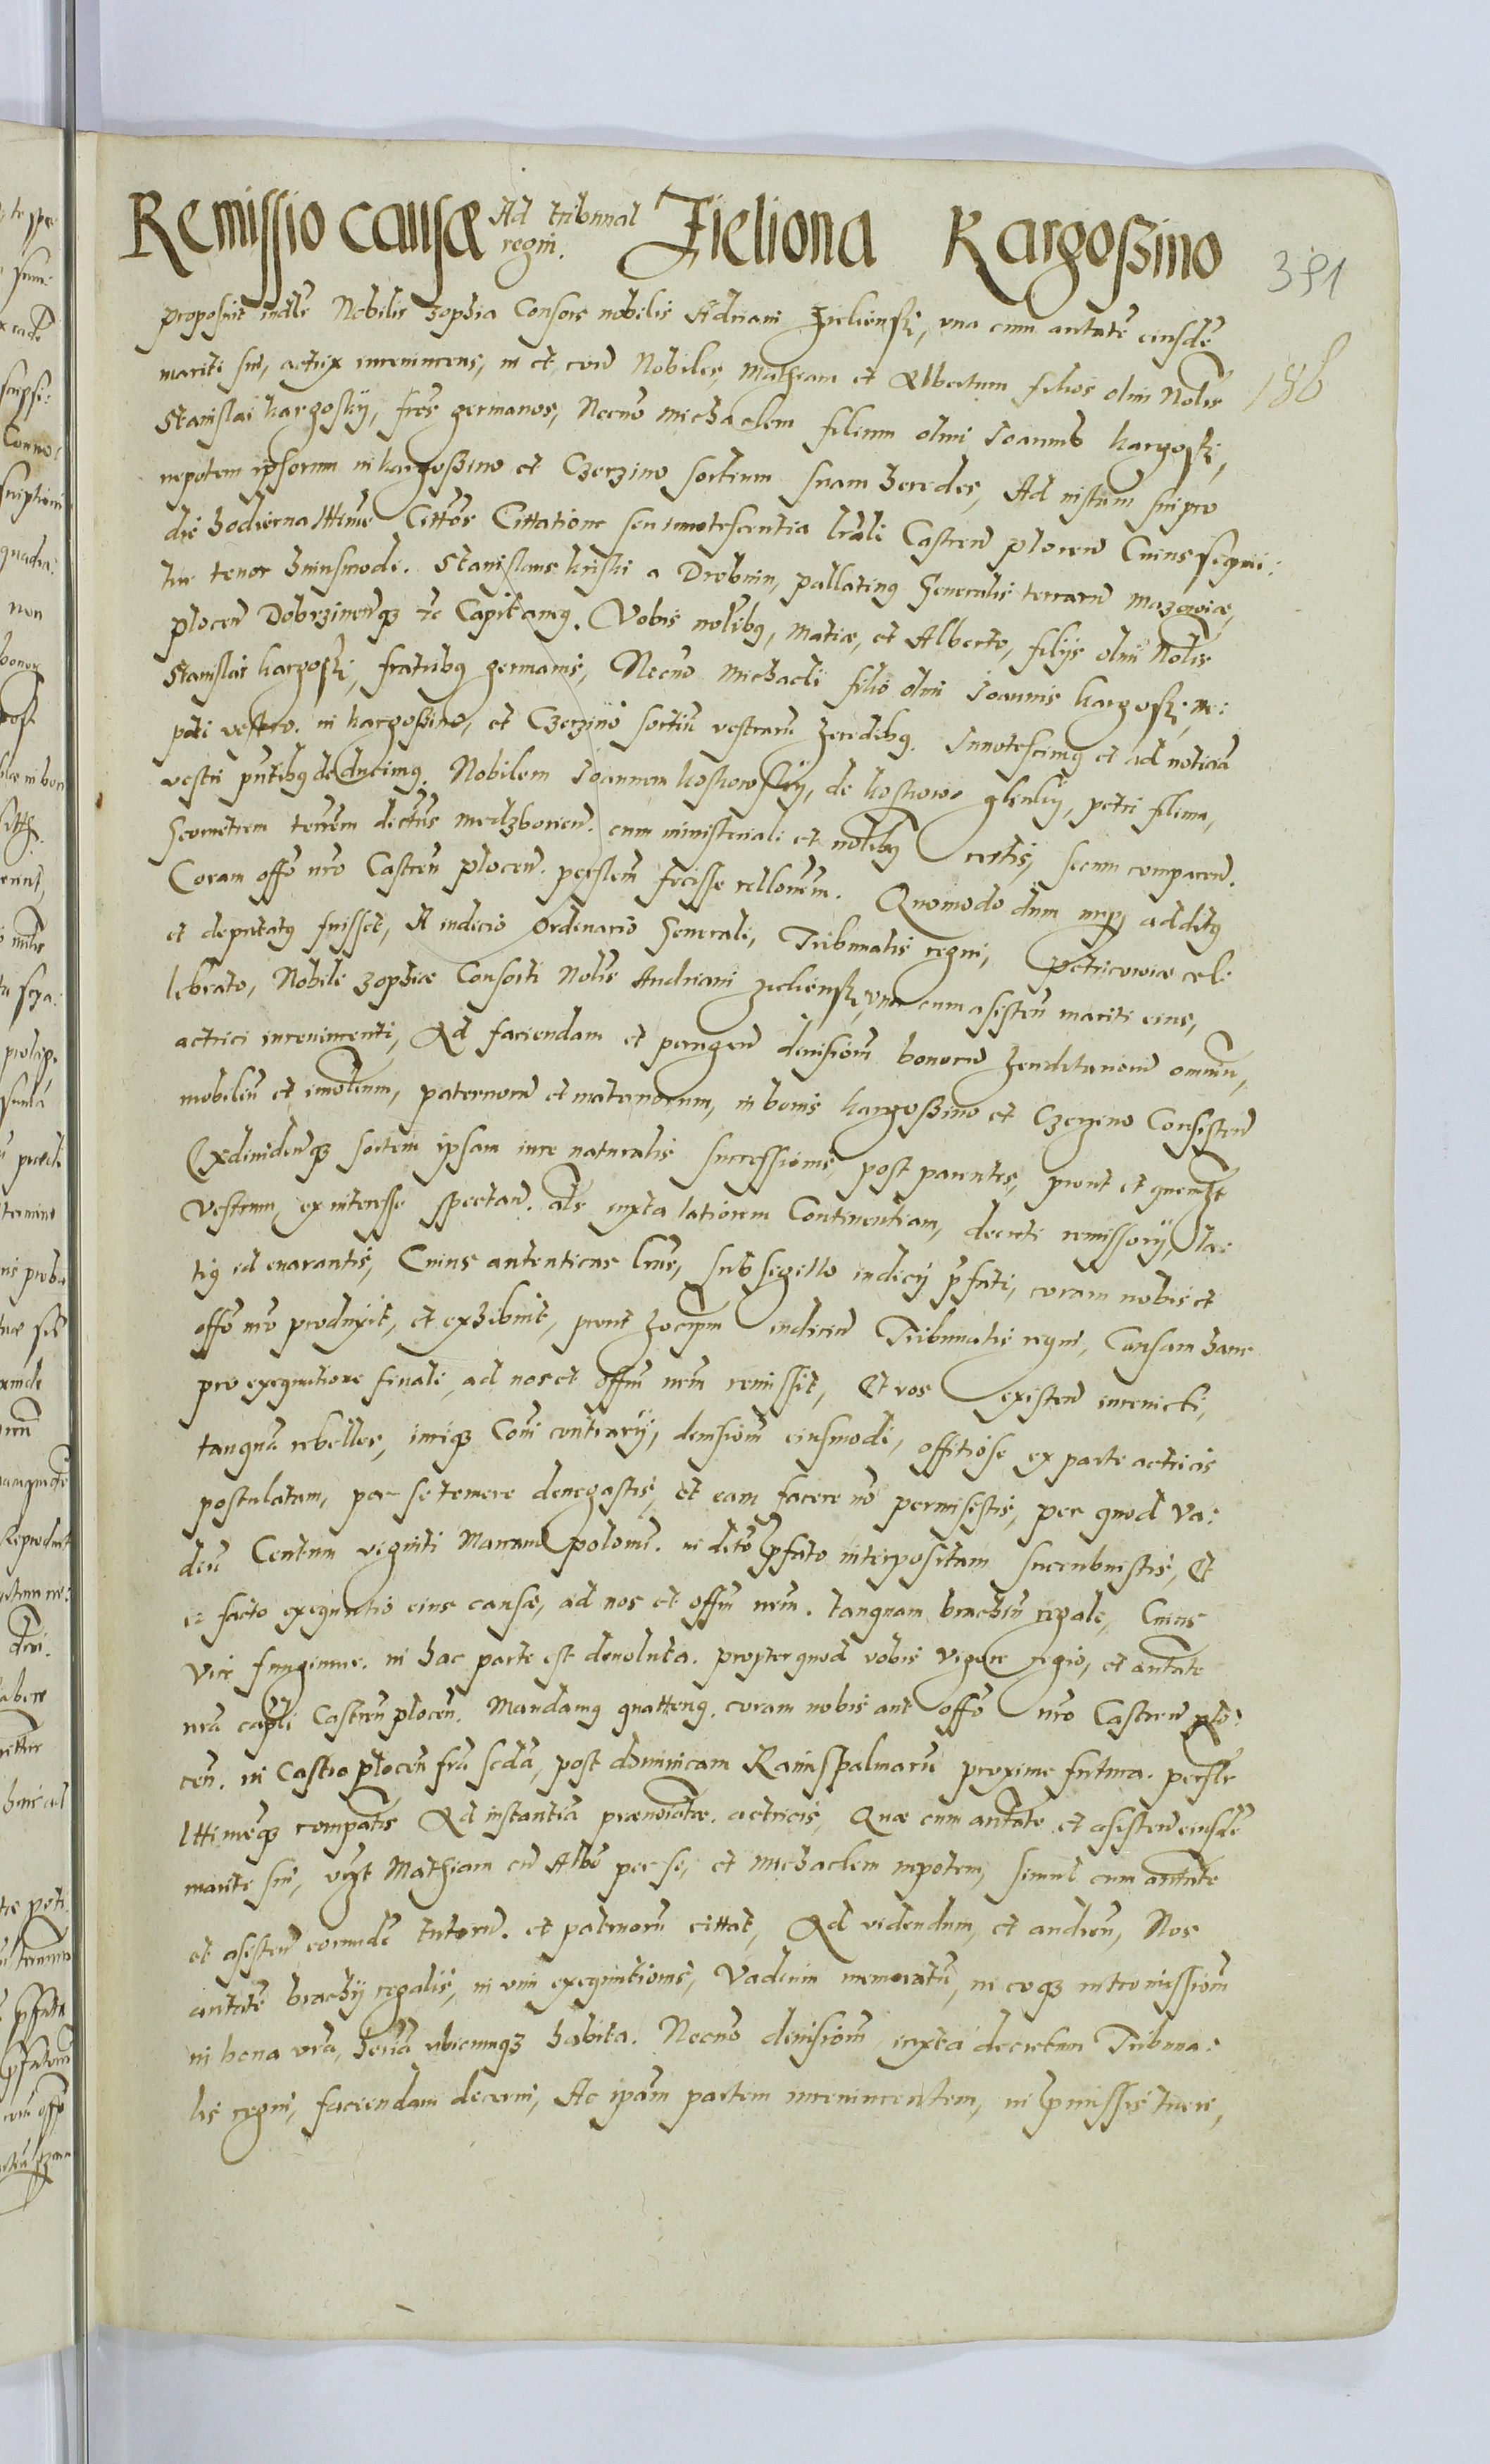 Remissio causæ Ad tribunal regni. Zieliona Kargoszino
391
186
proposuit indle Nobilis Zophia Consors nobilis Adriani Zielienski, una cum autate eiusde
mariti sui, actrix inrevincens, in et con Nobiles, Mathiam et Albertum filios olim Nobis
Stanislai Kargoskij, fres germanos, Necno Michaelem filium olim Joannis Kargoski,
nepotem ipsorum in Kargoszino et Czerzino sortium suam heredes, Ad instam sui pro
die hodierna lttime Cittos Cittatione seu innotescentia lrali Castren plocen Cuius sequi:
tur tenor huiusmodi. Stanislaus Kriski a Drobnin, pallatinus Generalis terrarum Mazowiæ,
plocen Dobrzinenq3 etc Capitaneus. Vobis nolibus, Matiæ, et Alberto, filijs olim Nobis
Stanislai Kargoski, fratribus germanis, Necno Michaeli filio olim Joannis Kargoski, ne:
poti vestro. in Kargoszino, et Czerzino sortiu vestraru heredibus. Innotescimus et ad noticia
vestri pntibus deducimus. Nobilem Joannem Koskowskij, de Koskowo glinkij, petri filium,
Geometrem terrem dictus Medzborien. cum ministeriali et nolibus certis, secum comparen.
Coram offo nro Castren plocen. psolem fecisse rellonem. Quomodo dum nup additus
et deputatus fuisset, A iudicio Ordinario Generali, Tribunalis regni, petricowiæ cel:
lebrato, Nobili Zophiæ Consorti Nobis Andriani Zielienski, una cum asisten mariti eius,
actrici inrevincenti, Ad faciendam et peragen divisionem bonorum hereditariorum omnium,
mobilium et imobilium, paternorum et maternorum, in bonis Kargoszino et Czerzino Consisten
Exdividenq3 sortem ipsam iure naturalis successionis, post parentes, prout et quemlt
vestrum, ex interesse spectan. als iuxta latiorem Continentiam, decreti remissorij, la:
tius id enarantis, Cuius autenticas lras, sub sigillo iudicij pfati, coram nobis et
offo nro produxit, et exhibuit, prout hocipm iudicium Tribunalis regni, Causam hanc
pro exequutione finali, ad nos et offm nrm remissit, Et vos existen inrevicti,
tanquam rebelles, iuriq3 Coni contrarij, divisionem eiusmodi, offitiose ex parte actricis
postulatam, per se temere denegastis, et eam facere no permisistis, per quod va:
dium Centum viginti Marcarum poloni. in dcto pfato interpositum succubuistis, Et
eo facto exequutio eius causæ, ad nos et offm nrm. tanquam brachiu regale, Cuius
vice fungimur. in hac parte est devoluta. propter quod vobis vigore regio, et autate
nra capli Castren plocen. Mandamus quattenus. coram nobis aut offo nro Castren plo:
cen. in Castro plocen fra scda, post dominicam Ramispalmaru proxime futura. psolr
lttimeq3 compatis Ad instantia prænoiatæ. actricis, Quæ cum autate et asisten eiusde
marite sui, vos Mathiam cu Albo per se, et Michaelem nepotem, simul cum autate
et asisten eorunde tutoru. et patruoru cittat, Ad videndum, et audien, Nos
autate brachij regalis, in vim exequutionis, vadium memoratum, in eoq3 intromissionem
in bona vra, hella ubicumq3 habita. Necno divisionem iuxta decretum Tribuna:
lis regni, faciendam decerni, Ac ipam partem inrevincentem, in pmissis tueri,